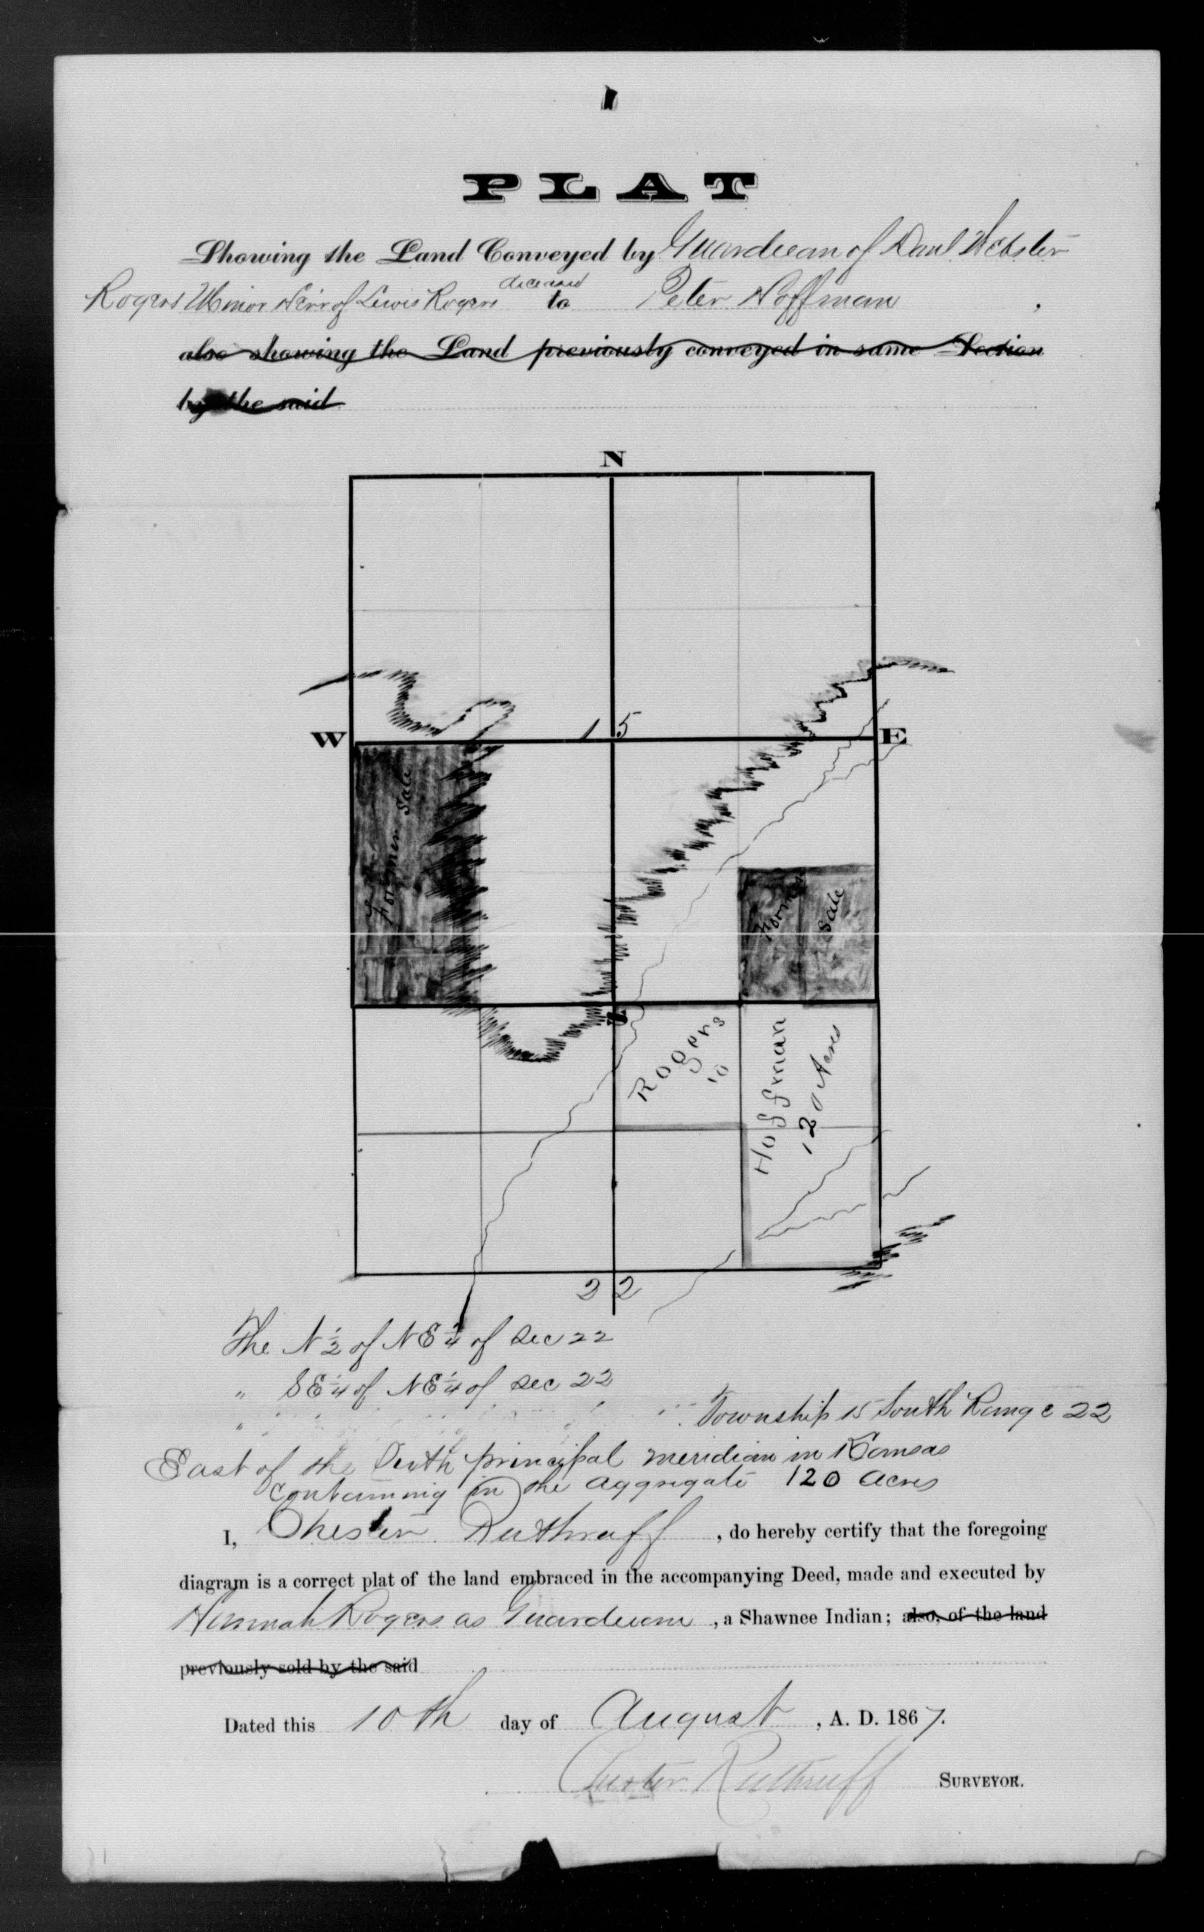 PLAT
Showing the Land Conveyed by Guardiean of Danl Webster
Rogers Minor Heir of Lewis Rogers deceased to Peter Hoffman ,
also showing the Land previously conveyed in same Section
by the said
N
W
15
E
Former Sale
Former Sale
Rogers
to
Hoffman
120 Acres
22
The N ½ of NE ¼ of Sec 22
" SE ¼ of NE ¼ of Sec 22
" Township 15 South Range 22
East of the Sixth principal meridian in Kansas
containing in the aggregate 120 acres
I, Chester Ruthruff , do hereby certify that the foregoing
diagram is a correct plat of the land embraced in the accompanying Deed, made and executed by
Hannah Rogers as Guardian , a Shawnee Indian; also, of the land
previously sold by the said
Dated this 10th day of August , A. D. 1867.
Chester Ruthruff SURVEYOR.